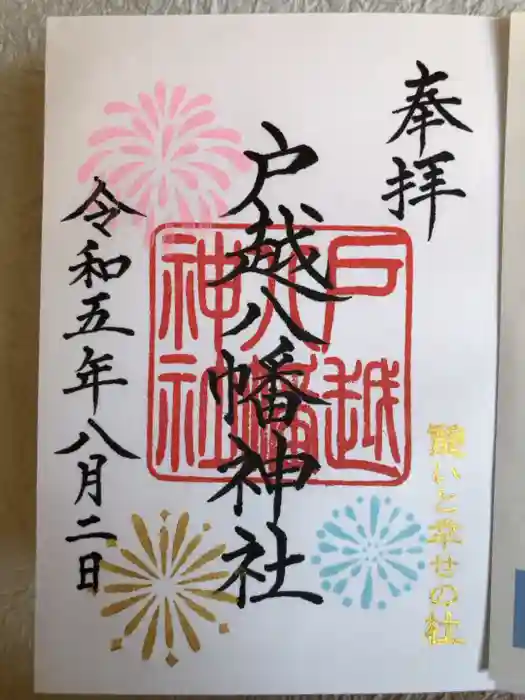 奉拝
戸越八幡神社
戸越八幡神社
令和五年八月二日
願いと幸せの社